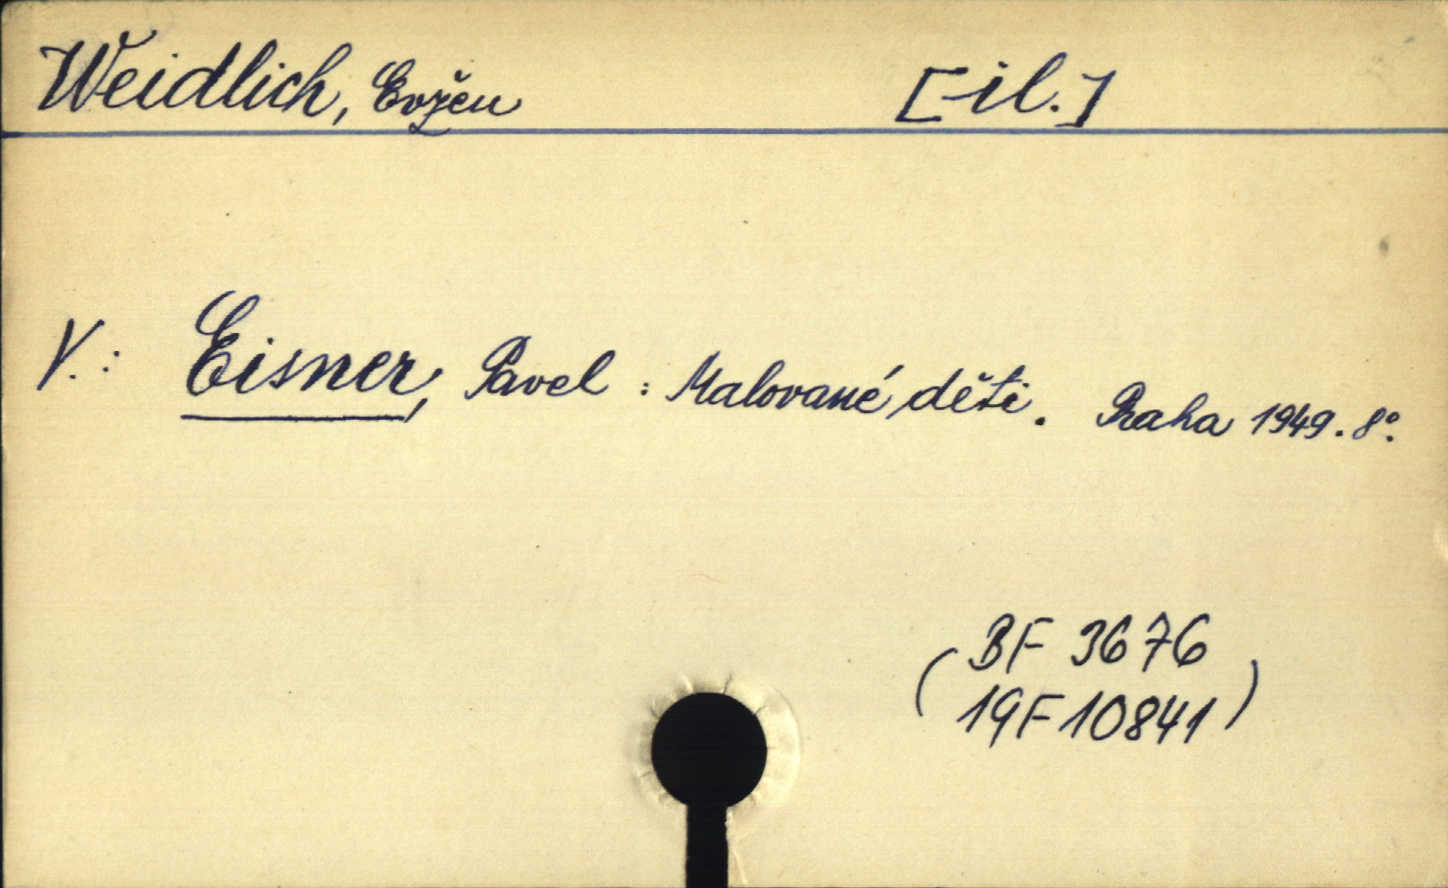 Weidlich, Evžen [il.]
V.: Eisner, Pavel : Malované děti. Praha 1949. 8°.
(BF 3676
19F10841)